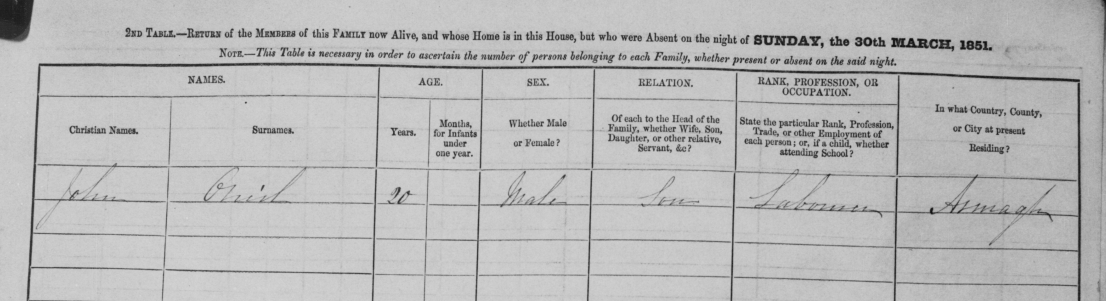 2ND TABLE.—RETURN of the MEMBERS of this FAMILY now Alive, and whose Home is in this House, but who were Absent on the night of SUNDAY, the 30th MARCH, 1851.
NOTE.—This Table is necessary in order to ascertain the number of persons belonging to each Family, whether present or absent on the said night.
NAMES.
AGE.
SEX.
RELATION.
RANK, PROFESSION, OR
OCCUPATION.
In what Country, County,
or City at present
Residing?
Christian Names.
Surnames.
Years.
Months,
for Infants
under
one year.
Whether Male
or Female?
Of each to the Head of the
Family, whether Wife, Son,
Daughter, or other relative,
Servant, &c?
State the particular Rank, Profession,
Trade, or other Employment of
each person; or, if a child, whether
attending School?
John Oneil 20 Male Son Labourer Armagh